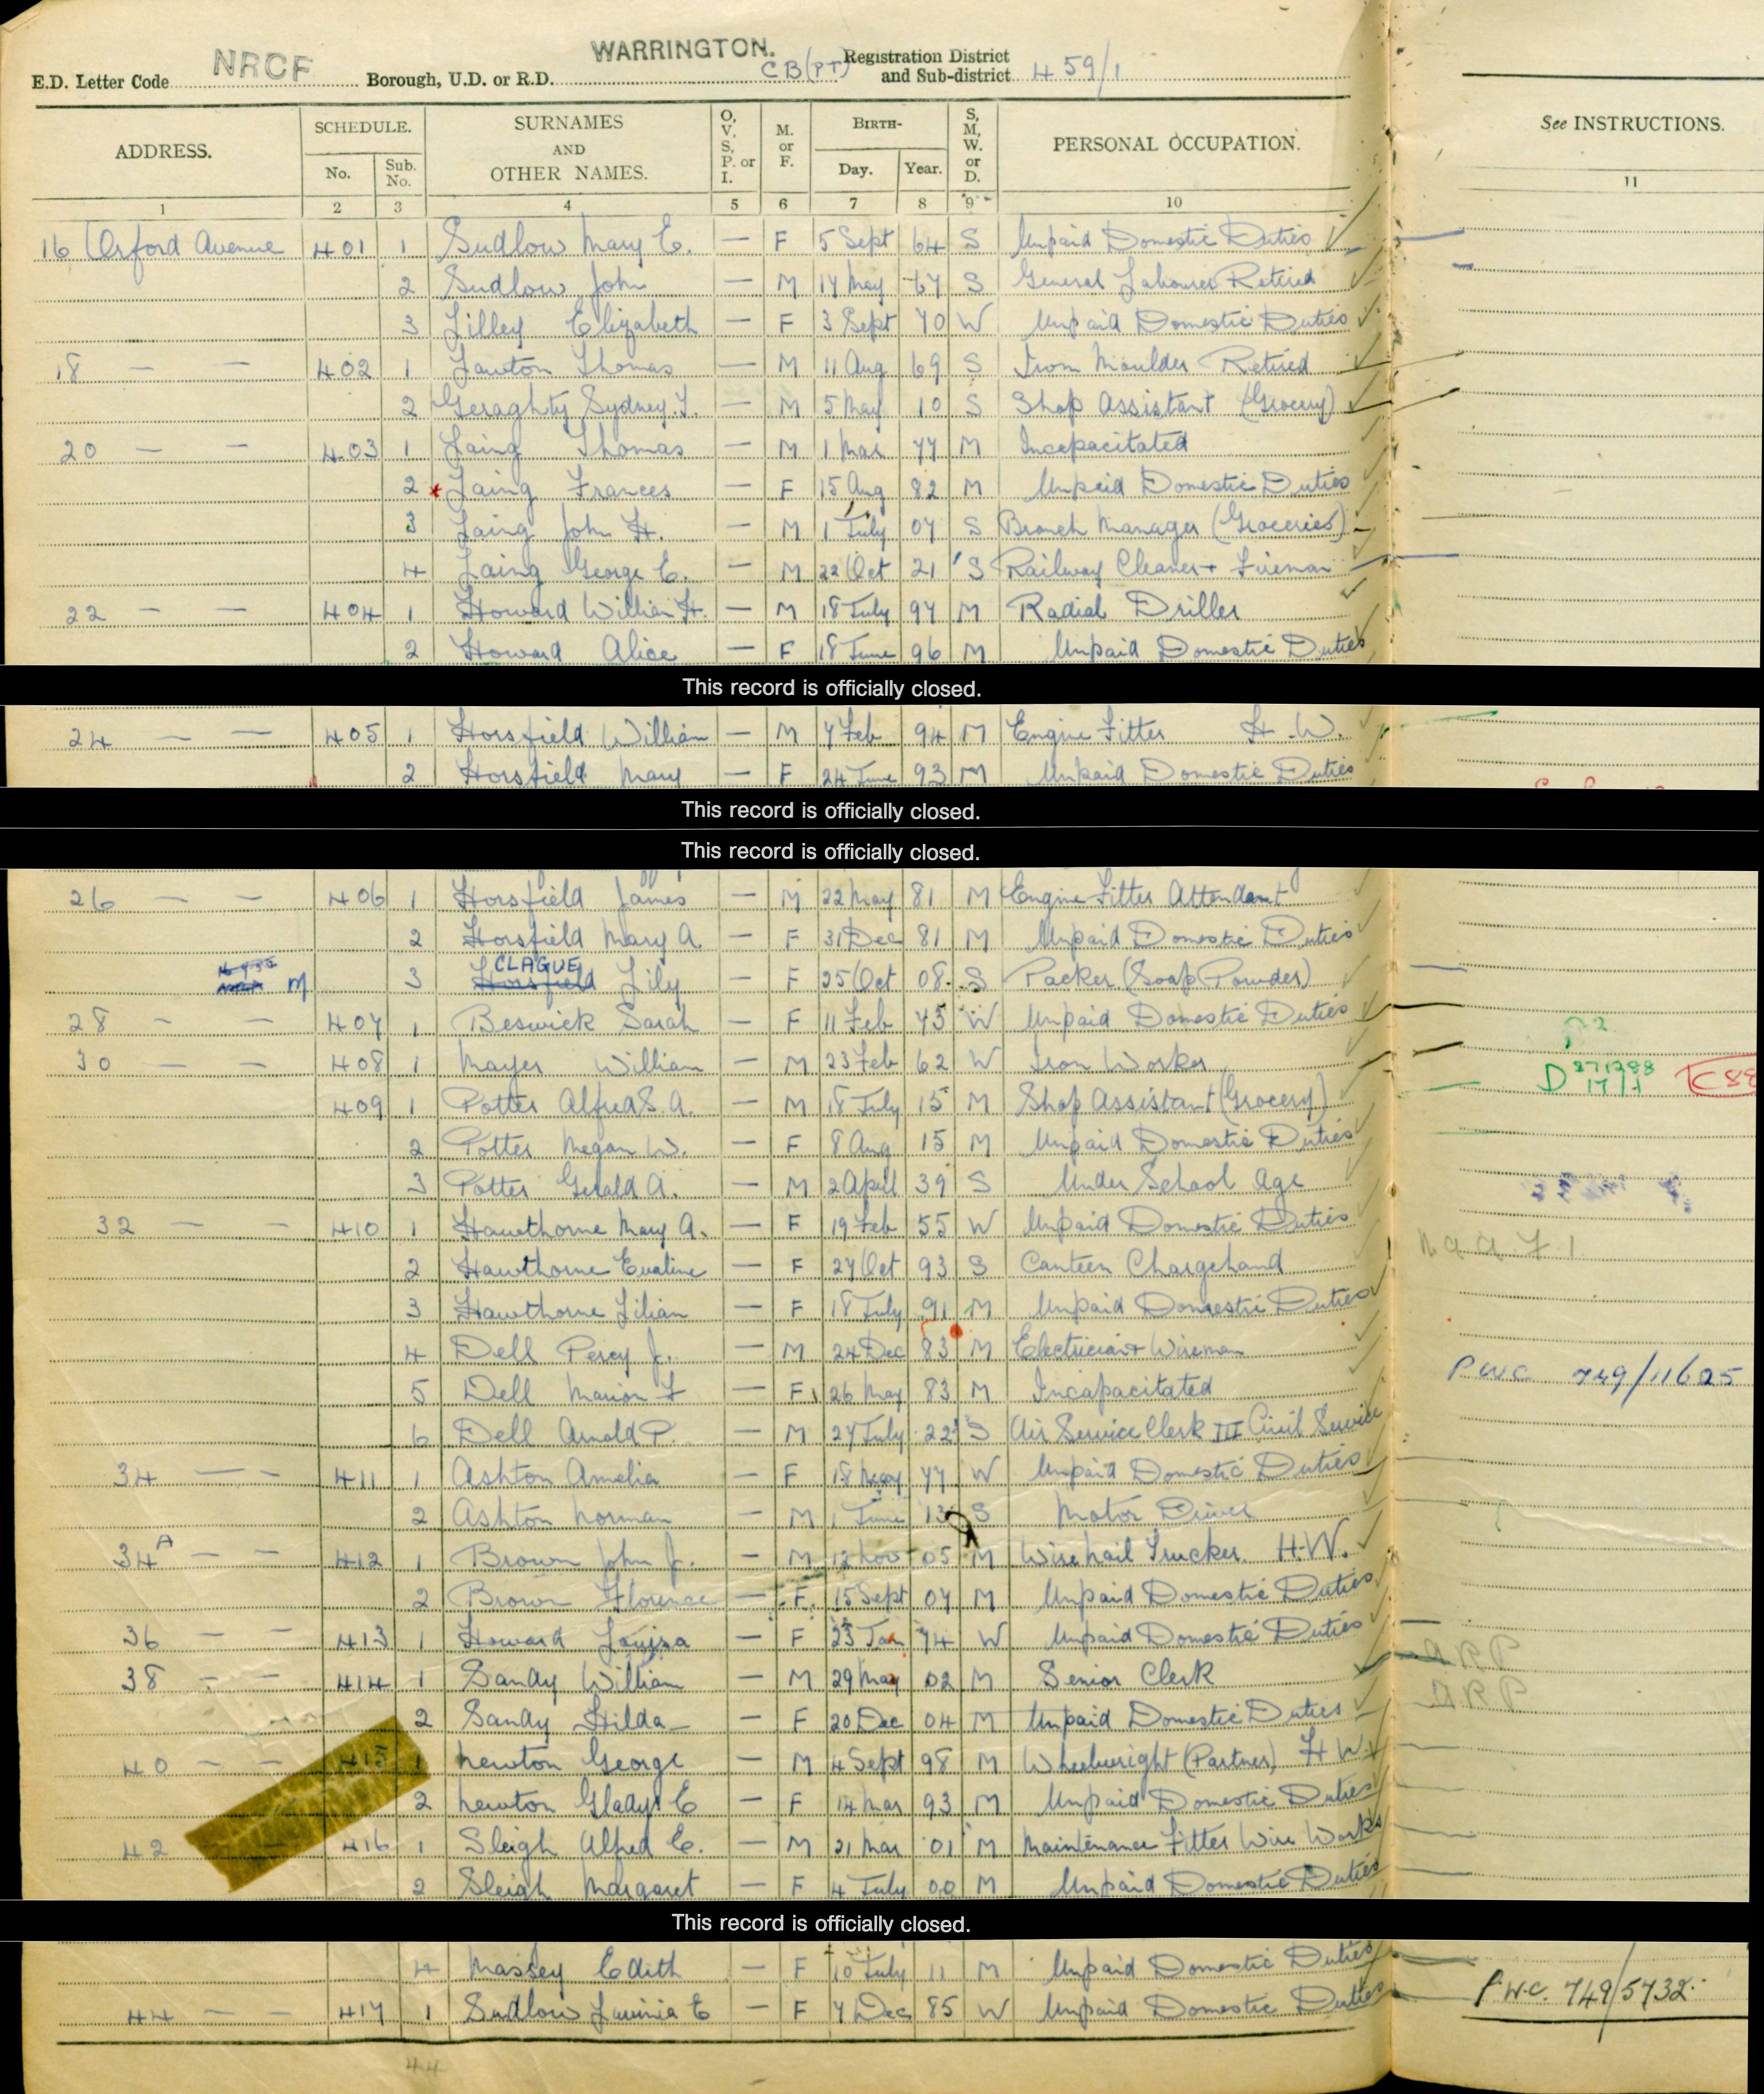 WARRINGTON.
E.D. Letter Code NRCF Borough, U.D. or R.D. CB(PT) Registration District and Sub-district 459/1
ADDRESS. SCHEDULE. No. Sub. No. SURNAMES AND OTHER NAMES. O, V, S, P. or I. M. or F. BIRTH- Day. Year. S, M, W. or D. PERSONAL OCCUPATION. See INSTRUCTIONS.
1 2 3 4 5 6 7 8 9 10 11
16 Orford Avenue 401 1 Sudlow Mary E. — F 5 Sept 64 S Unpaid Domestic Duties
2 Sudlow John — M 14 May 67 S General Labourer Retired
3 Lilley Elizabeth — F 3 Sept 70 W Unpaid Domestic Duties
18 — — 402 1 Lawton Thomas — M 11 Aug 69 S Iron Moulder Retired
2 Geraghty Sydney. — M 5 May 10 S Shop Assistant (Grocery)
20 — — 403 1 Laing Thomas — M 1 Mar 77 M Incapacitated
2 Laing Frances — F 15 Aug 82 M Unpaid Domestic Duties
3 Laing John H. — M 1 July 07 S Branch Manager (Groceries)
4 Laing George E. — M 22 Oct 21 S Railway Cleaner + Fireman
22 — — 404 1 Howard William H. — M 18 July 97 M Radial Driller
2 Howard Alice — F 18 June 96 M Unpaid Domestic Duties
This record is officially closed.
24 — — 405 1 Horsfield William — M 7 Feb 94 M Engine Fitter H.W.
2 Horsfield Mary — F 24 June 93 M Unpaid Domestic Duties
This record is officially closed.
This record is officially closed.
26 — — 406 1 Horsfield James — M 22 May 81 M Engine Fitter Attendant
2 Horsfield Mary A. — F 31 Dec 81 M Unpaid Domestic Duties
CLAGUE
M 3 Horsfield Lily — F 25 Oct 08 S Packer (Soap Powder)
28 — — 407 1 Beswick Sarah — F 11 Feb 75 W Unpaid Domestic Duties
30 — — 408 1 Mayer William — M 23 Feb 62 W Iron Worker
409 1 Potter Alfred S. A. — M 18 July 15 M Shop Assistant (Grocery) D 271288 17/1
2 Potter Megan W. — F 8 Aug 15 M Unpaid Domestic Duties
3 Potter Gerald A. — M 2 April 39 S Under School Age
32 — — 410 1 Hawthorne Mary A. — F 19 Feb 55 W Unpaid Domestic Duties
2 Hawthorne Evaline — F 27 Oct 93 S Canteen Chargehand
3 Hawthorne Lilian — F 18 July 91 M Unpaid Domestic Duties
4 Dell Percy J. — M 24 Dec 83 M Electrician + Wireman
5 Dell Marion F — F 26 May 83 M Incapacitated PWC 749/11625
6 Dell Arnold P. — M 27 July 22 S Air Service Clerk III Civil Service
34 — — 411 1 Ashton Amelia — F 18 May 77 W Unpaid Domestic Duties
2 Ashton Norman — M 1 June 13 S Motor Driver
34A — — 412 1 Brown John J. — M 12 Nov 05 M Wire Nail Trucker. H.W.
2 Brown Florence — F 15 Sept 07 M Unpaid Domestic Duties
36 — — 413 1 Howard Louisa — F 23 Jan 74 W Unpaid Domestic Duties ARP
38 — — 414 1 Sandy William — M 29 May 02 M Senior Clerk ARP
2 Sandy Hilda — F 20 Dec 04 M Unpaid Domestic Duties
40 — — 415 1 Newton George — M 4 Sept 98 M Wheelwright (Partner) H W
2 Newton Gladys E — F 14 Mar 93 M Unpaid Domestic Duties
42 — 416 1 Sleigh Alfred E. — M 21 Mar 01 M Maintenance Fitter Wire Works
2 Sleigh Margaret — F 4 July 00 M Unpaid Domestic Duties
This record is officially closed.
4 Massey Edith — F 10 July 11 M Unpaid Domestic Duties
44 — — 417 1 Sudlow Lavinia E — F 7 Dec 85 W Unpaid Domestic Duties P.W.C. 749/5732.
44